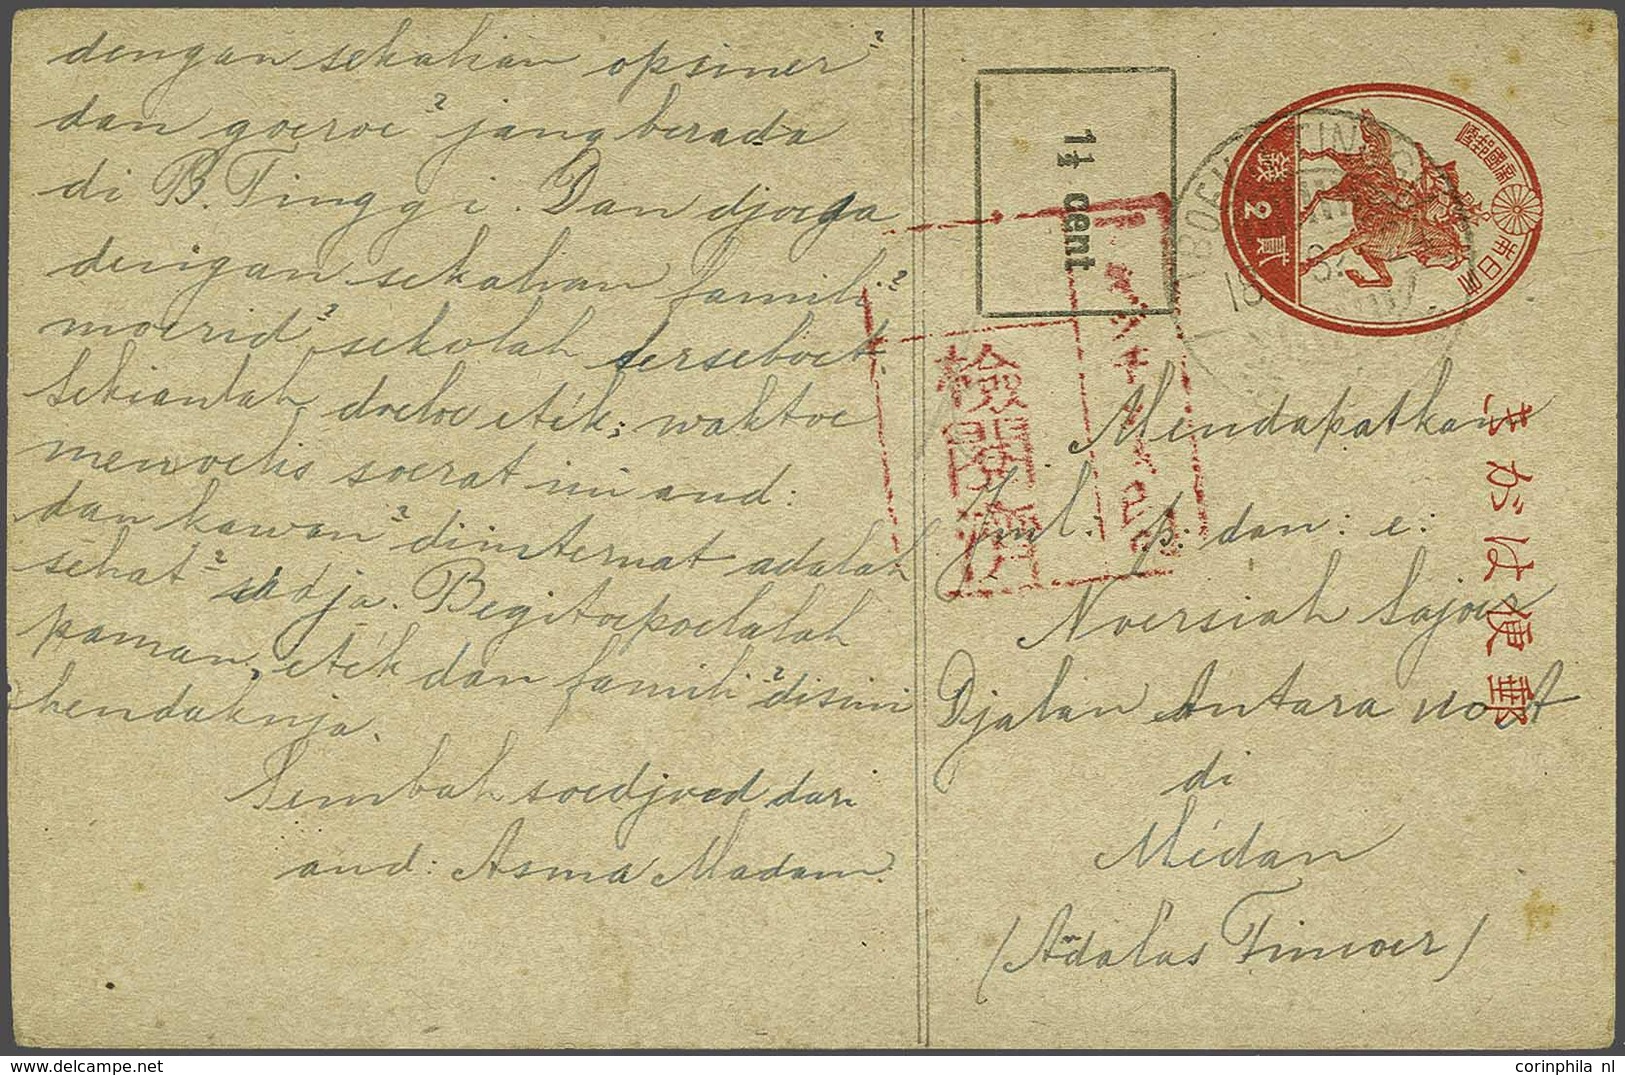 dengan sekalian opsiner ²
dan goeroe ² jang berada
di B. Tinggi. Dan djoega
dengan sekalian famili ²
moerid ² sekolah terseboet.
Sekianlah doeloe eték; waktoe
menoelis soerat ini and:
dan kawan ² diinternat adalah
sehat ² sadja. Begitoepoelalah
paman, eték dan famili ² disini
hendaknja.
Sembah soedjoed dari
and: Asma Madam.
1½ cent
検閲済
BOEKITTINGGI
18
大日本帝國郵便
貳 2 錢
きがは便郵
Mendapatkan
p. dan: e:
Noersiah Sajoer
Djalan Antara
di
Médan
(Andalas Timoer)
corinphila nl